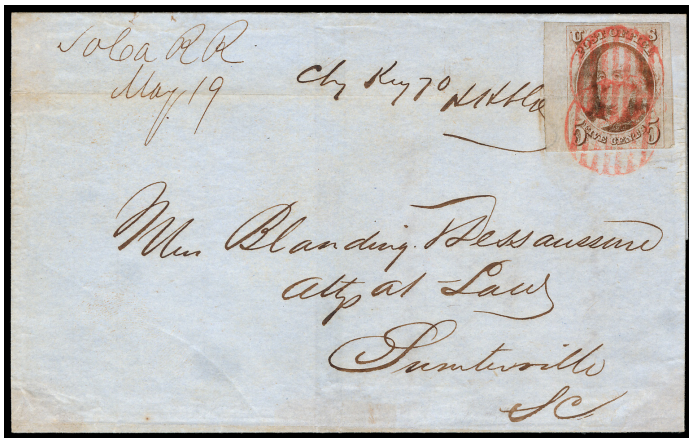 So Ca RR
May 19
Chg Key 70
U S
POST OFFICE
5 FIVE CENTS 5
Blanding
Attys at Law
Sumterville
SC